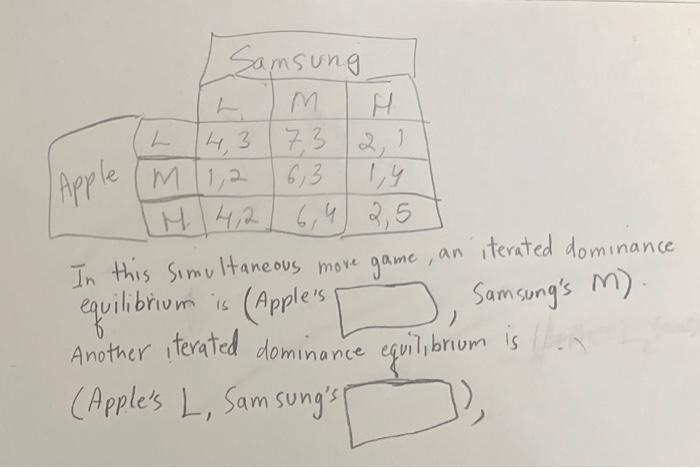 Samsung
L M H
L 4,3 7,3 2,1
Apple M 1,2 6,3 1,4
H 4,2 6,4 2,5
In this simultaneous move game, an iterated dominance
equilibrium is (Apple's , Samsung's M).
Another iterated dominance equilibrium is
(Apple's L, Samsung's ),